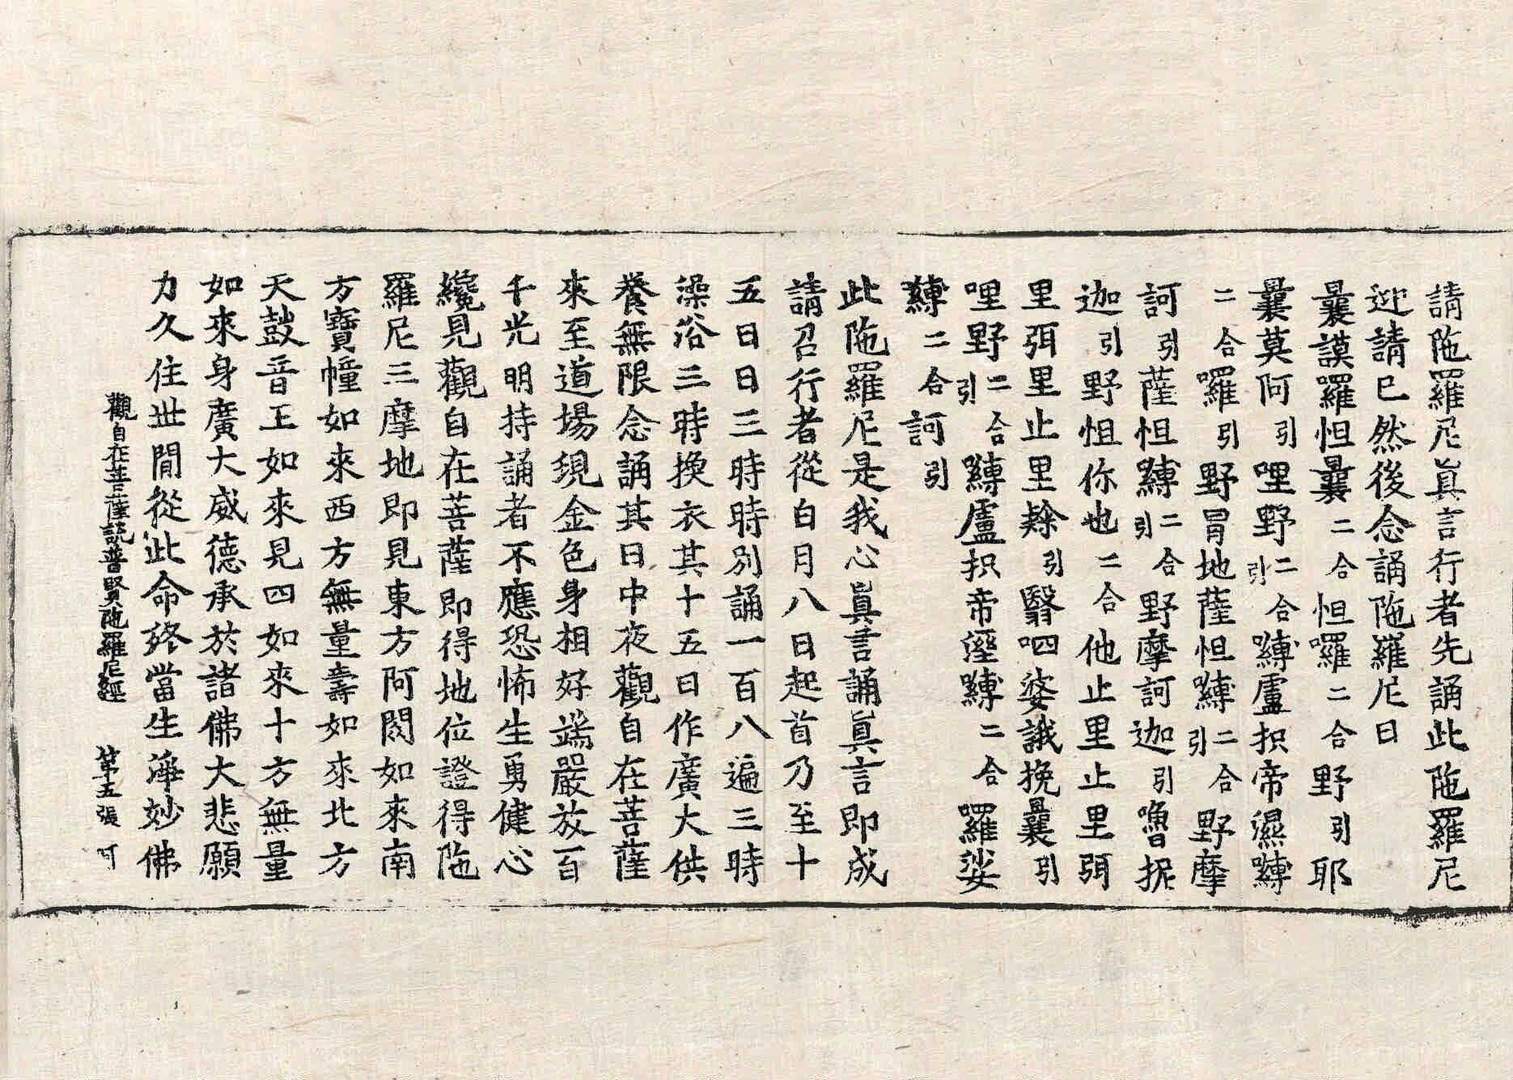 請陁羅尼眞言行者先誦此陁羅尼
迎請已然後念誦陁羅尼曰
曩謨羅怛曩二合怛囉二合野引耶
曩莫阿引哩野引二合嚩盧抧帝濕嚩
二合囉引野冐地薩怛嚩引二合野摩
訶引薩怛嚩引二合野摩訶迦引嚕抳
迦引野怛你也二合他止里止里弭
里弭里止里𨁝引翳呬婆誐挽曩引
哩野引二合嚩盧抧帝溼嚩二合羅娑
嚩二合訶引
此陁羅尼是我心眞言誦眞言即成
請召行者從白月八日起首乃至十
五日日三時時別誦一百八遍三時
澡浴三時換衣其十五日作廣大供
養無限念誦其日中夜觀自在菩薩
來至道場現金色身相好端嚴放百
千光明持誦者不應恐怖生勇健心
纔見觀自在菩薩即得地位證得陁
羅尼三摩地即見東方阿閦如來南
方寶幢如來西方無量壽如來北方
天鼓音王如來見四如來十方無量
如來身廣大威德承於諸佛大悲願
力久住世閒從此命終當生淨妙佛
觀自在菩薩說普賢陁羅尼經 第五張 可